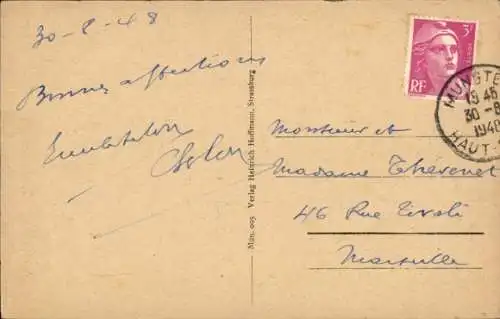 30-8-48
Bonnes affections
Mün. 005 Verlag Heinrich Hoffmann, Strassburg
3F
RF
MUNSTE
19 45
30 -8
1948
HAUT-
Monsieur et
Madame Thévenet
46 Rue Tivoli
Marseille